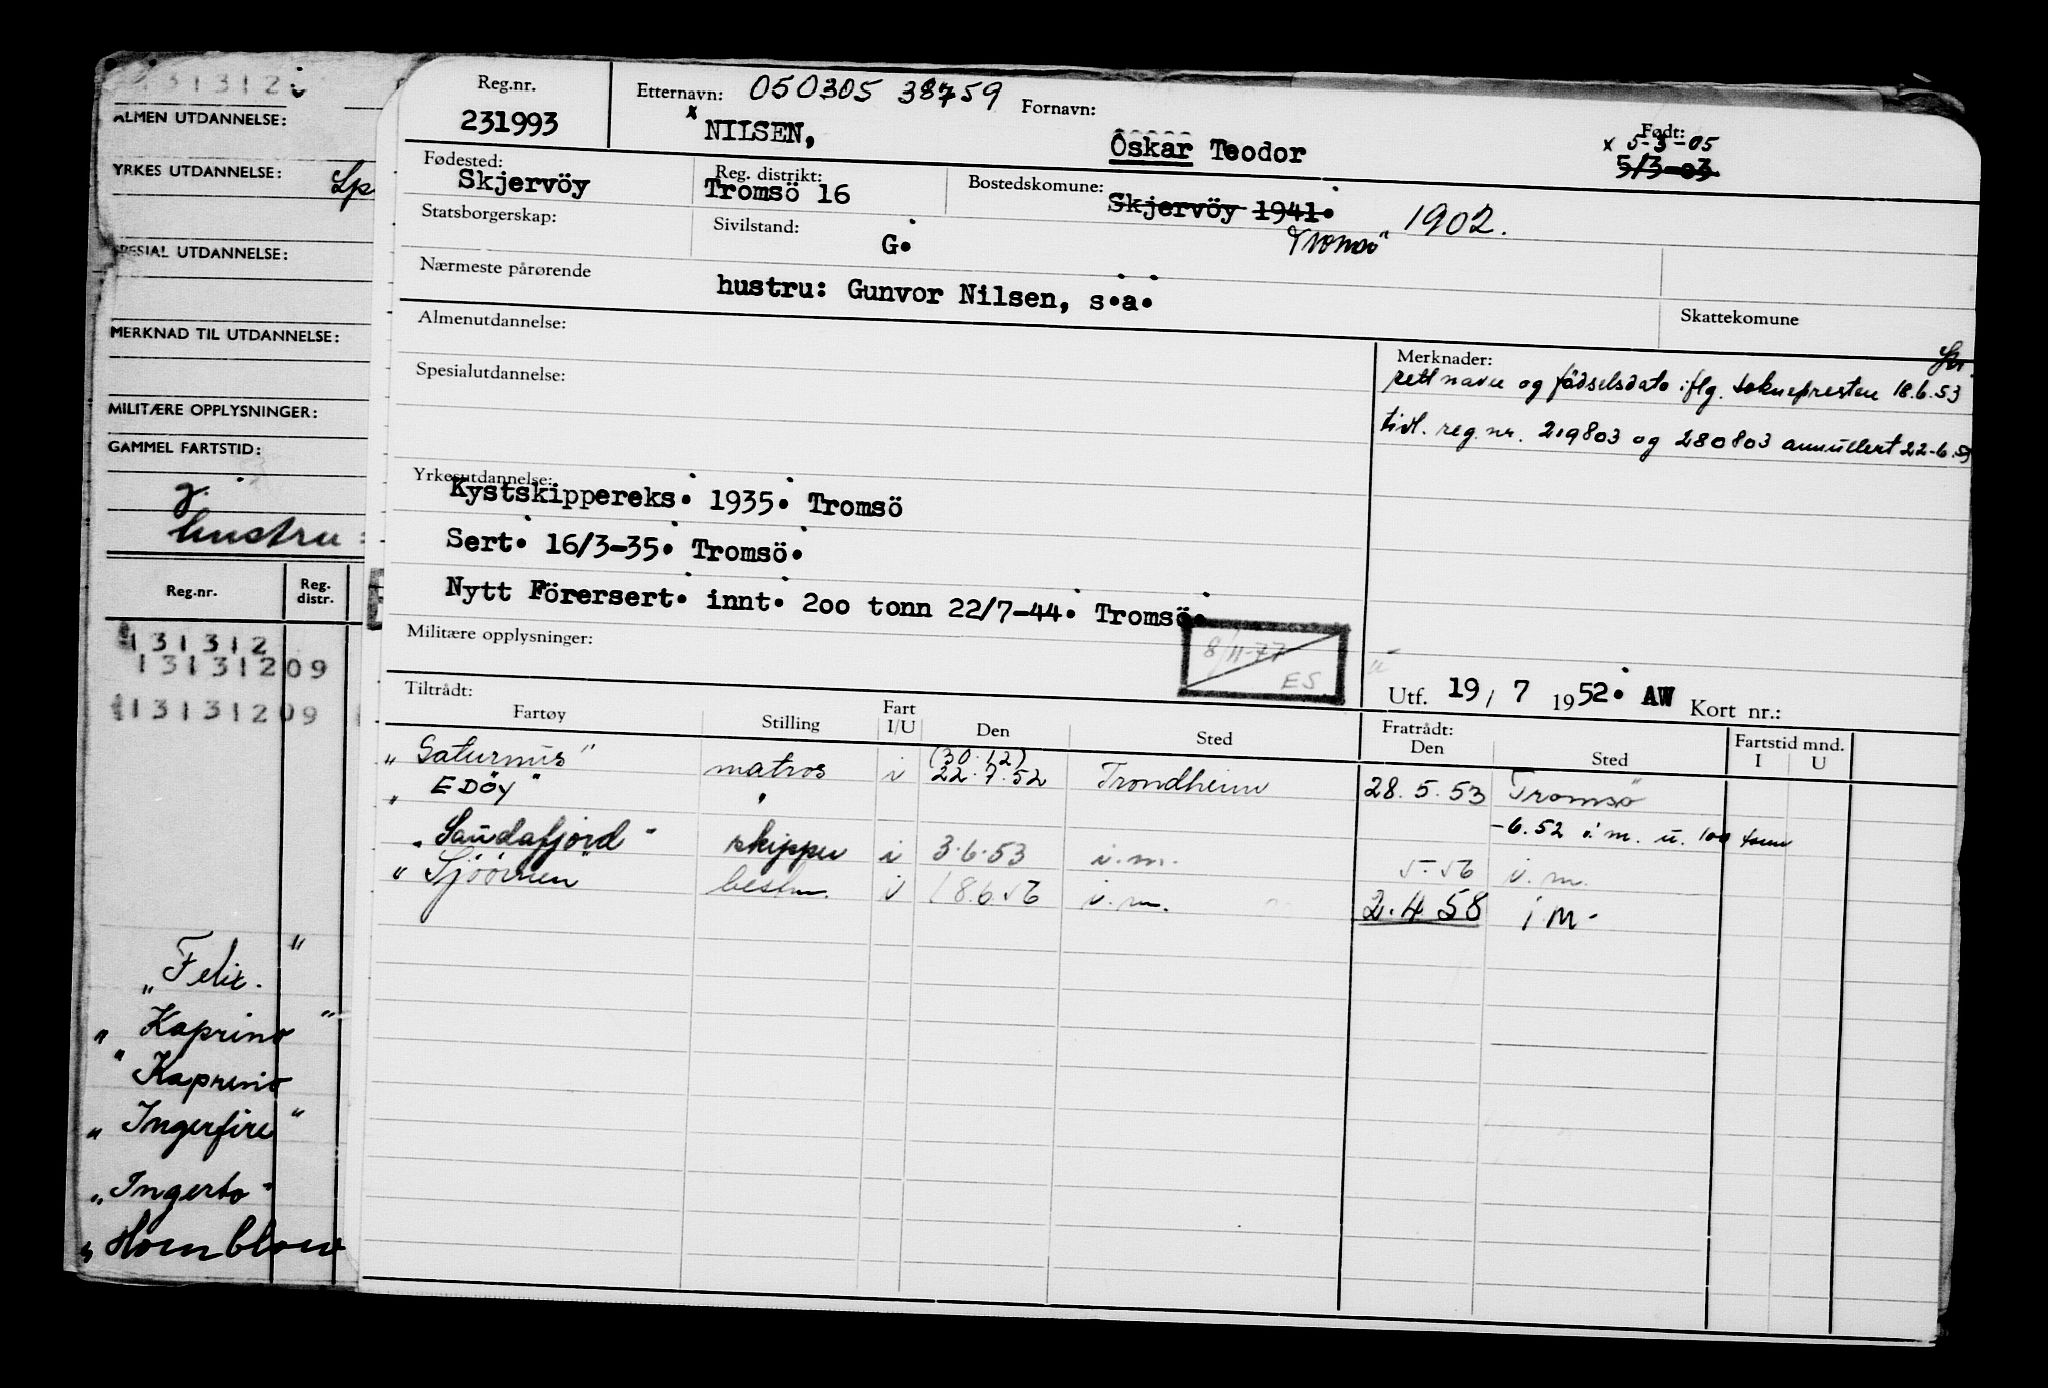 131312
ALMEN UTDANNELSE:
YRKES UTDANNELSE:
SPESIAL UTDANNELSE:
MERKNAD TIL UTDANNELSE:
MILITÆRE OPPLYSNINGER:
GAMMEL FARTSTID:
g.
hustru :
Reg.nr. Reg. distr.
131312
13131209
13131209
"Felix."
"Kaprino"
"Kaprino
"Ingerfire"
"Ingerto"
"Hornblow
Reg.nr. Etternavn: 050305 38759 Fornavn: Født:
231993 x NILSEN, Oskar Teodor x 5-3-05
5/3-03
Fødested: Reg. distrikt: Bostedskomune:
Skjervöy Tromsö 16 Skjervöy 1941. 1902.
Tromsö
Statsborgerskap: Sivilstand: G.
Nærmeste pårørende hustru: Gunvor Nilsen, s.a.
Skattekomune
Almenutdannelse:
Merknader:
rett navn og födselsdato iflg. soknepresten 18.6.53
tidl. reg.nr. 219803 og 280803 annullert 22-6.53
Spesialutdannelse:
Yrkesutdannelse:
Kystskippereks. 1935. Tromsö
Sert. 16/3-35. Tromsö.
Nytt Förersert. innt. 200 tonn 22/7-44. Tromsö.
Militære opplysninger:
8/11-77
ES
Utf. 19/ 7 1952. AW Kort nr.:
Tiltrådt: Fratrådt:
Fartøy Stilling Fart I/U Den Sted Den Sted Fartstid mnd. I U
"Saturnus" matros i (30.12) 22.7.52 Trondheim 28.5.53 Tromsö
"EDÖY" " -6.52 i.m. u. 100 tonn
"Saudafjord" skipper i 3.6.53 i.m. 5-56 i.m.
"Sjöörnen" bestm. i 18.6.56 i.m. 2.4.58 i.m.